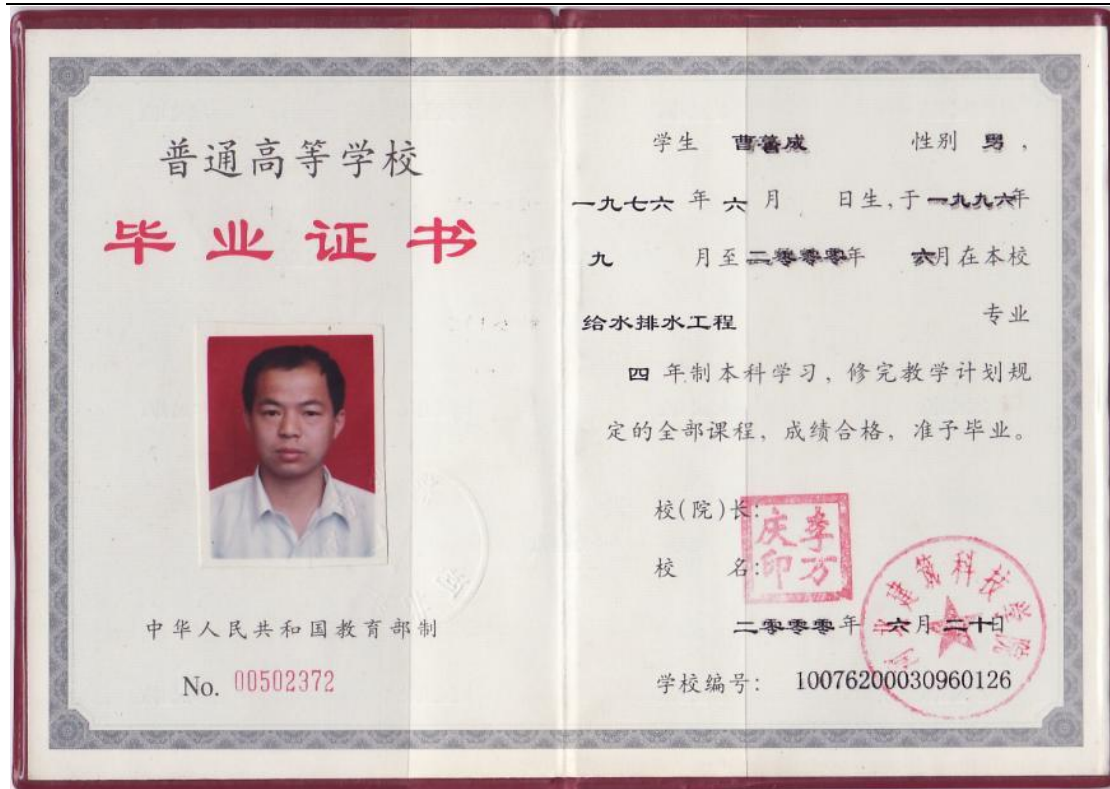 普通高等学校
毕业证书
中华人民共和国教育部制
No. 00502372
学生 曹蕾成 性别 男，
一九七六 年 六 月 日生,于一九九六年
九 月至二零零零年 六月在本校
给水排水工程 专业
四 年制本科学习，修完教学计划规
定的全部课程，成绩合格，准予毕业。
校(院)长:
李万庆印
校 名:
河北建筑科技学院
二零零零年 六月二十日
学校编号： 10076200030960126